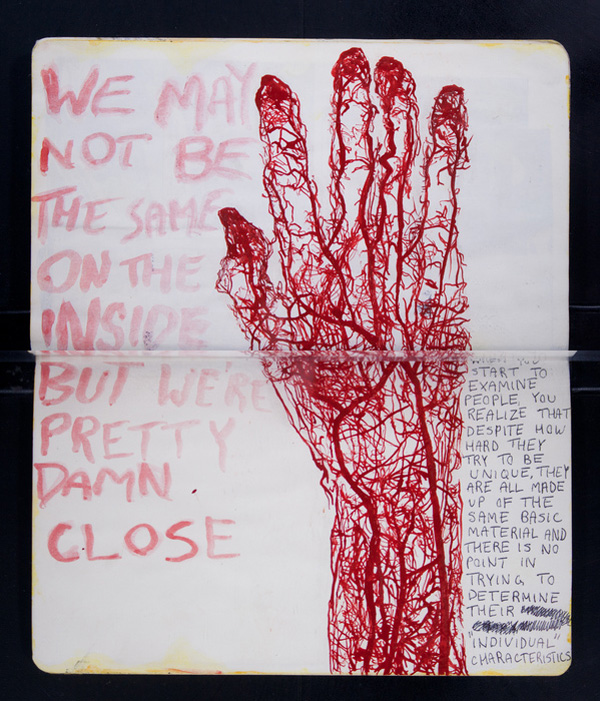 WE MAY
NOT BE
THE SAME
ON THE
INSIDE
BUT WE'RE
PRETTY
DAMN
CLOSE
WHEN YOU
START TO
EXAMINE
PEOPLE, YOU
REALIZE THAT
DESPITE HOW
HARD THEY
TRY TO BE
UNIQUE, THEY
ARE ALL MADE
UP OF THE
SAME BASIC
MATERIAL AND
THERE IS NO
POINT IN
TRYING TO
DETERMINE
THEIR
"INDIVIDUAL"
CHARACTERISTICS